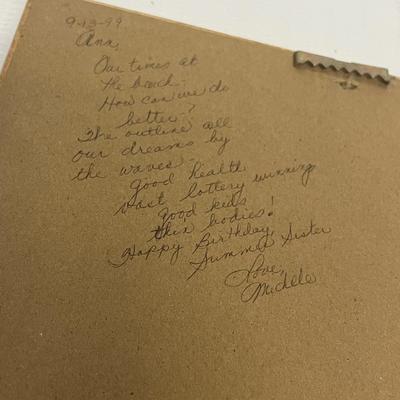 9-13-99
Ann,
Our times at
the beach.
How can we do
better?
The outline all
our dreams by
the waves -
good health
vast lottery winning
good kids
thin bodies!
Happy Birthday,
Summer Sister
Love,
Michele